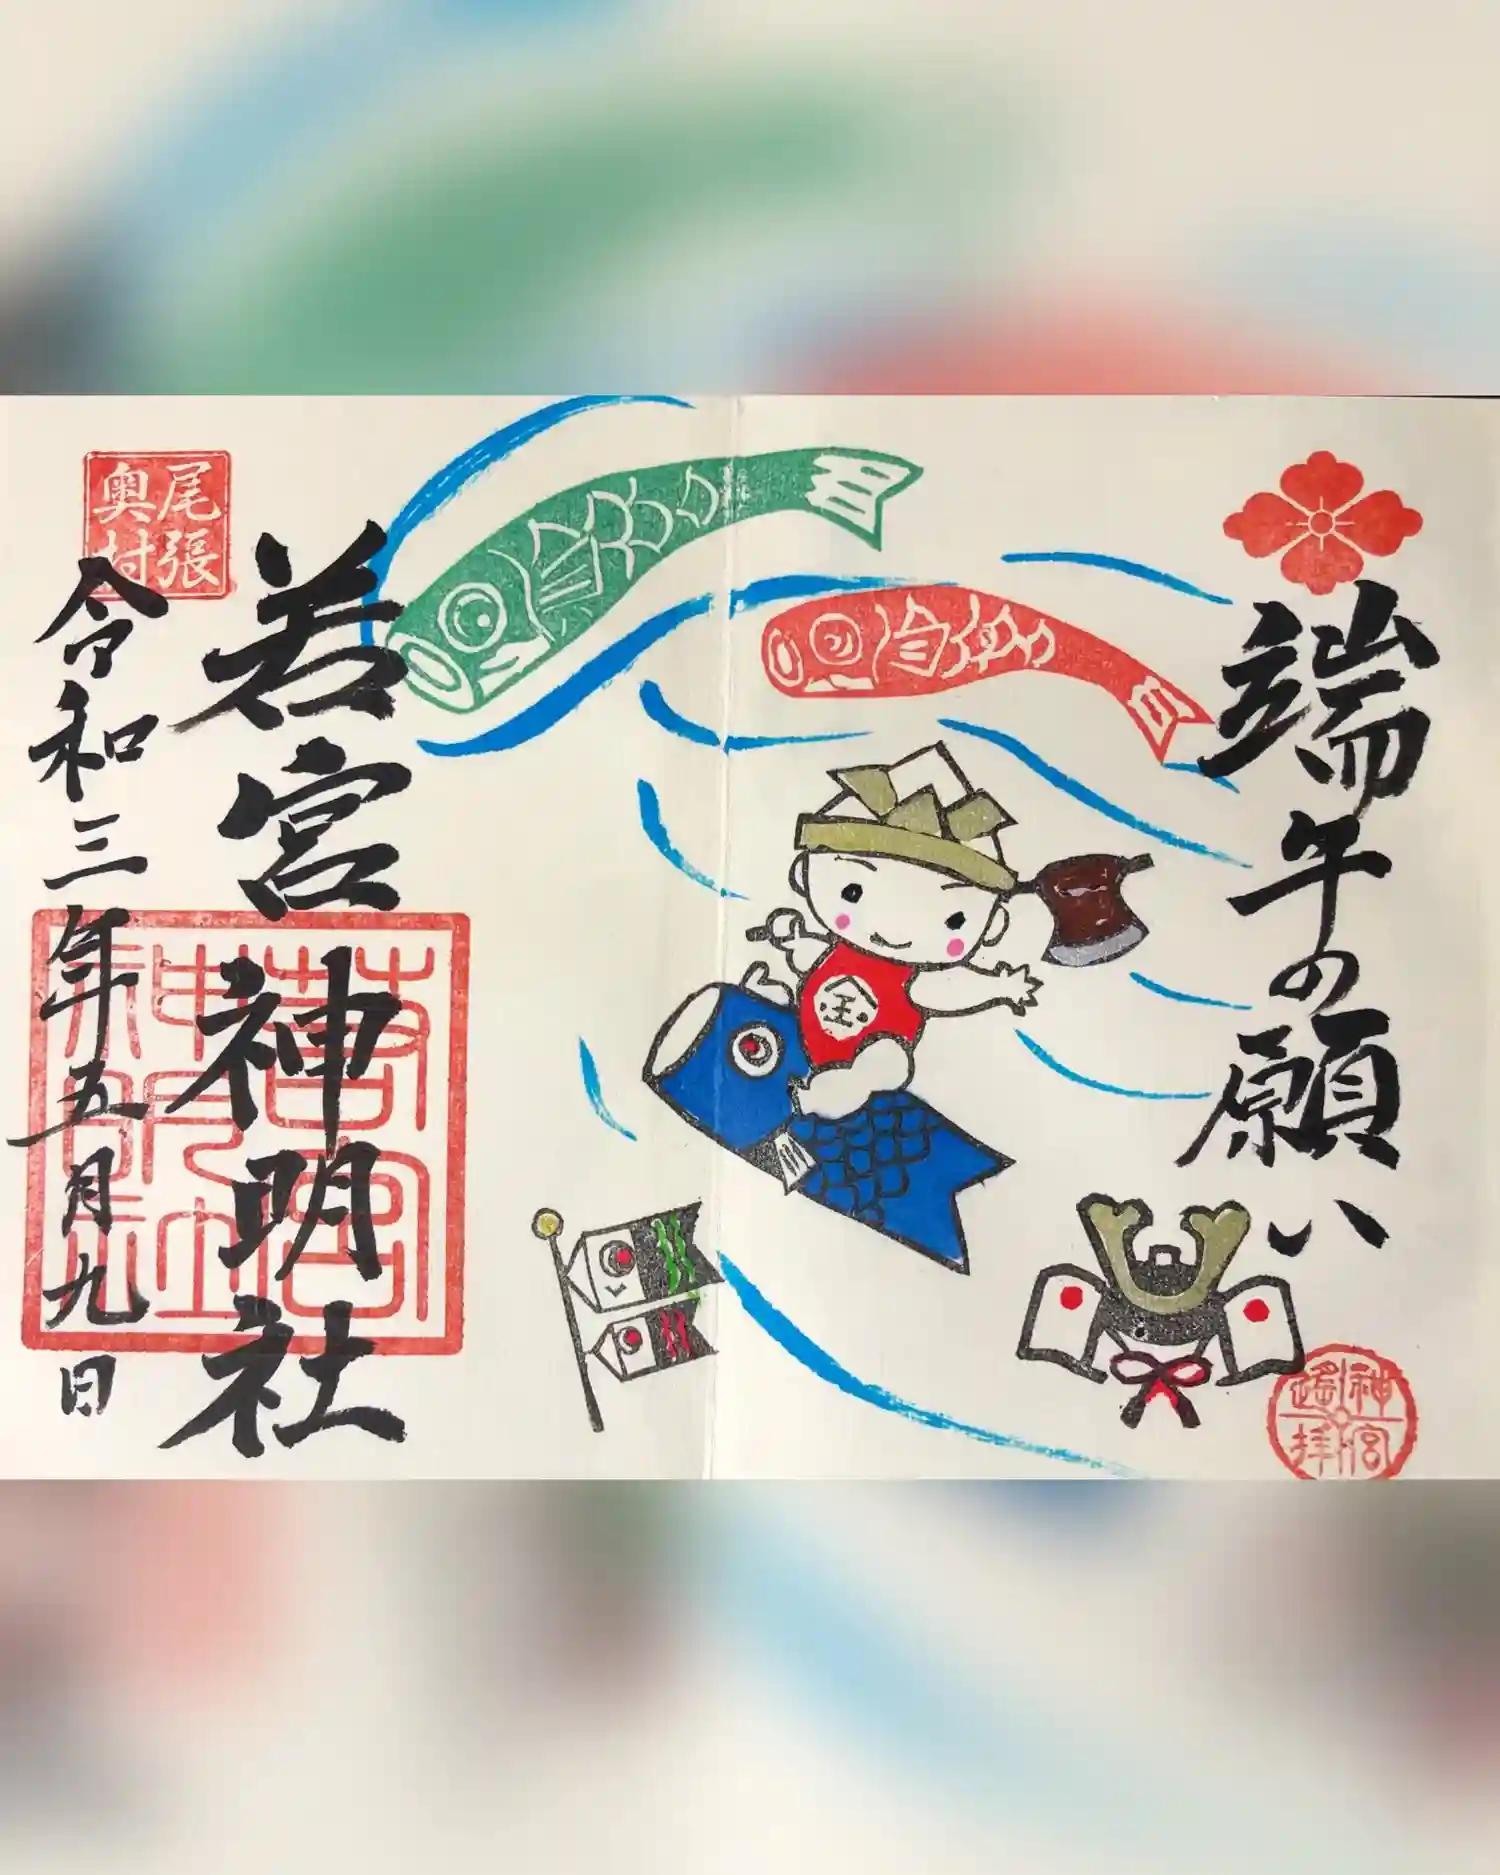 端午の願い
神宮
遥拝
金
若宮神明社
令和三年五月九日
尾張
奥村
若宮
神明社